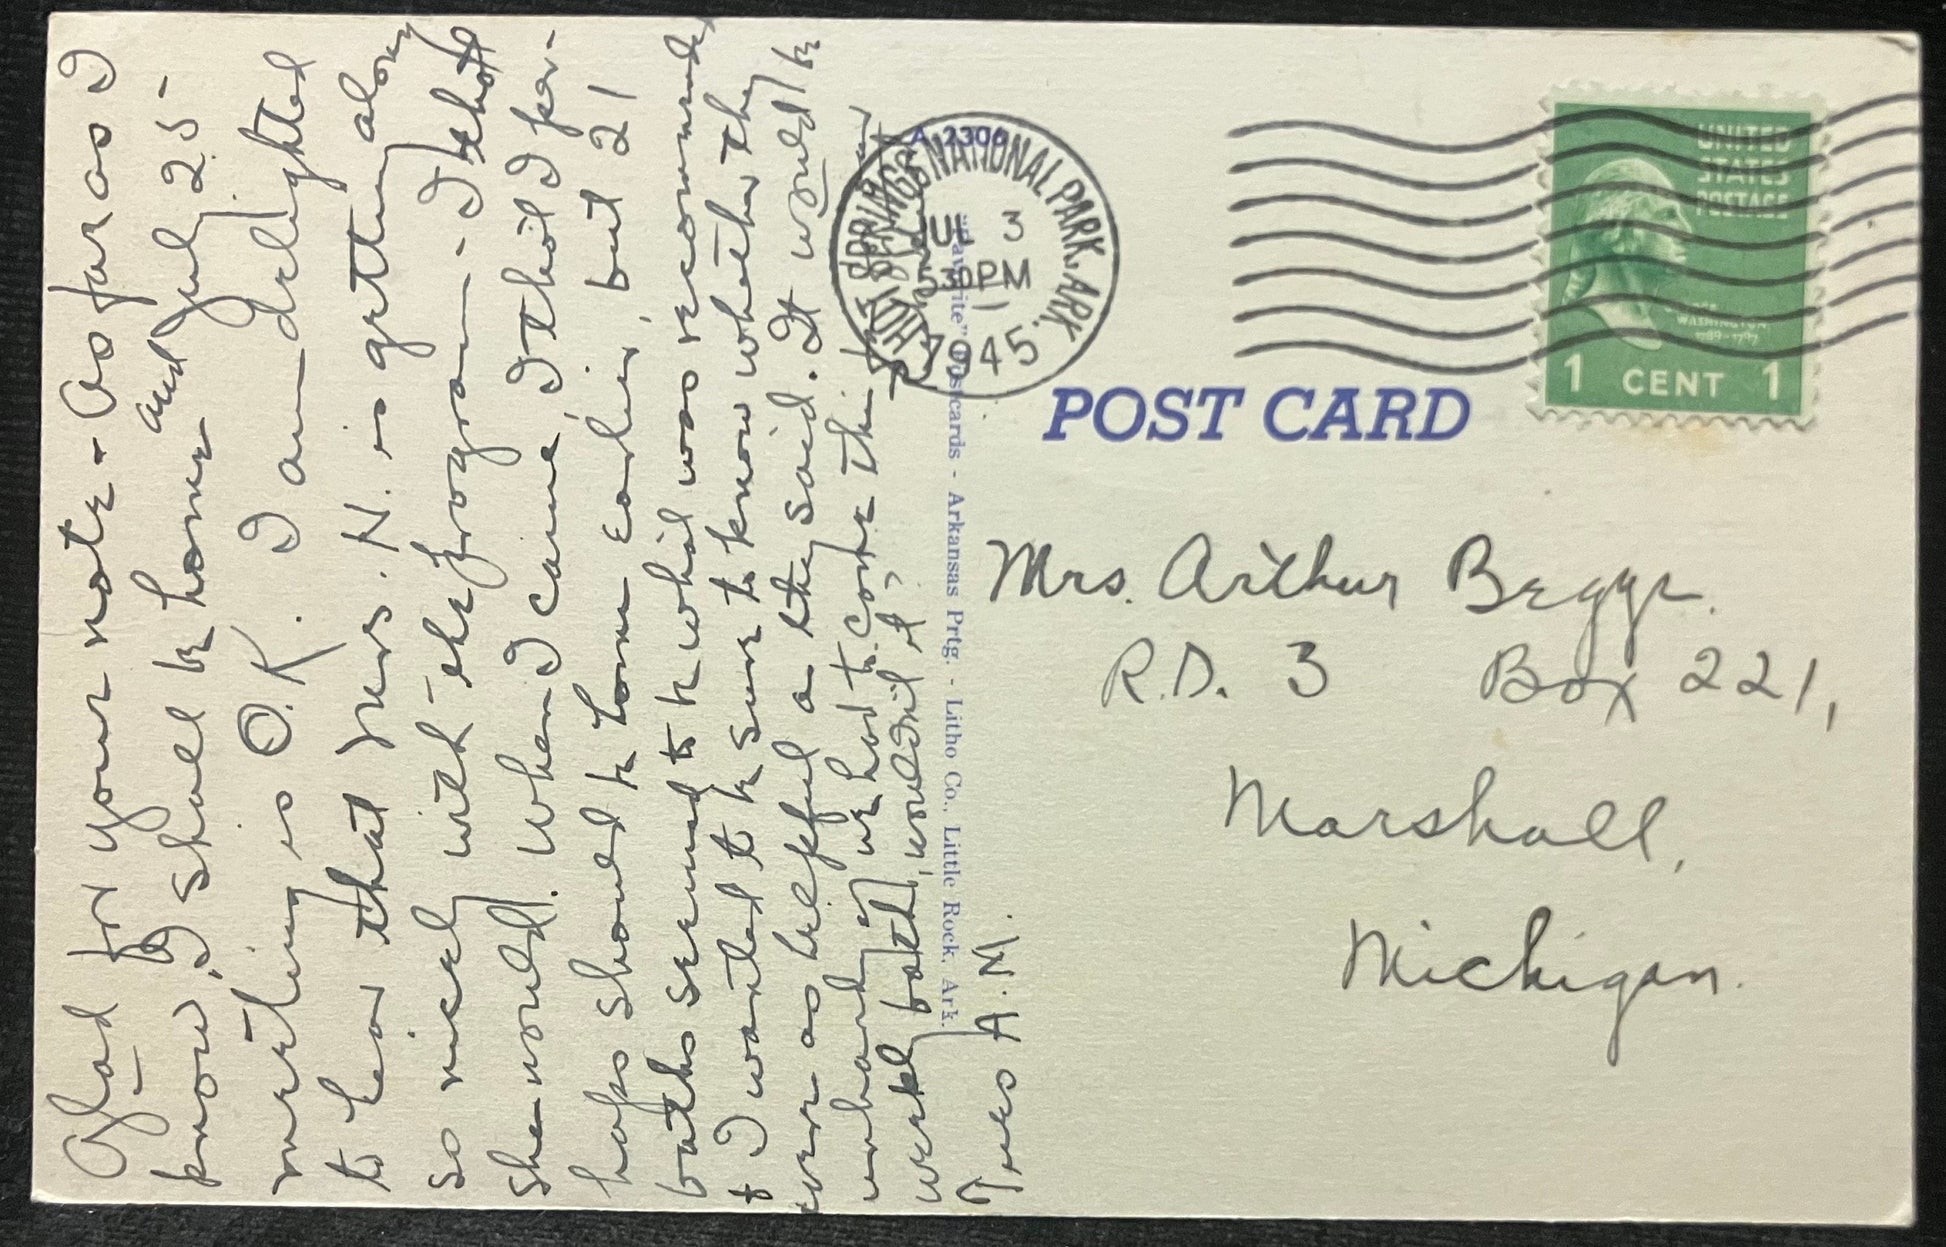 Glad for your note - As far as I
know, I shall be home and Jul 25 -
meeting is O.K. I am delighted
to hear that Mrs. N. is getting along
so nicely with the program - I
she would. When I came, I tho't I per-
haps should be home earlier, but 21
baths seemed to be what was recommended
& I wanted to be sure to know whether they
were as helpful as they said. It would be
if we had to come this far
weekly baths, wouldn't it,
Tues A.M.
A 2306
HOT SPRINGS NATIONAL PARK, ARK.
JUL 3
530 PM
1945
UNITED
STATES
POSTAGE
WASHINGTON
1789-1797
1 CENT 1
POST CARD
Postcards - Arkansas Prtg. - Litho Co., Little Rock, Ark.
Mrs. Arthur Beggs.
R.D. 3 Box 221,
Marshall,
Michigan.